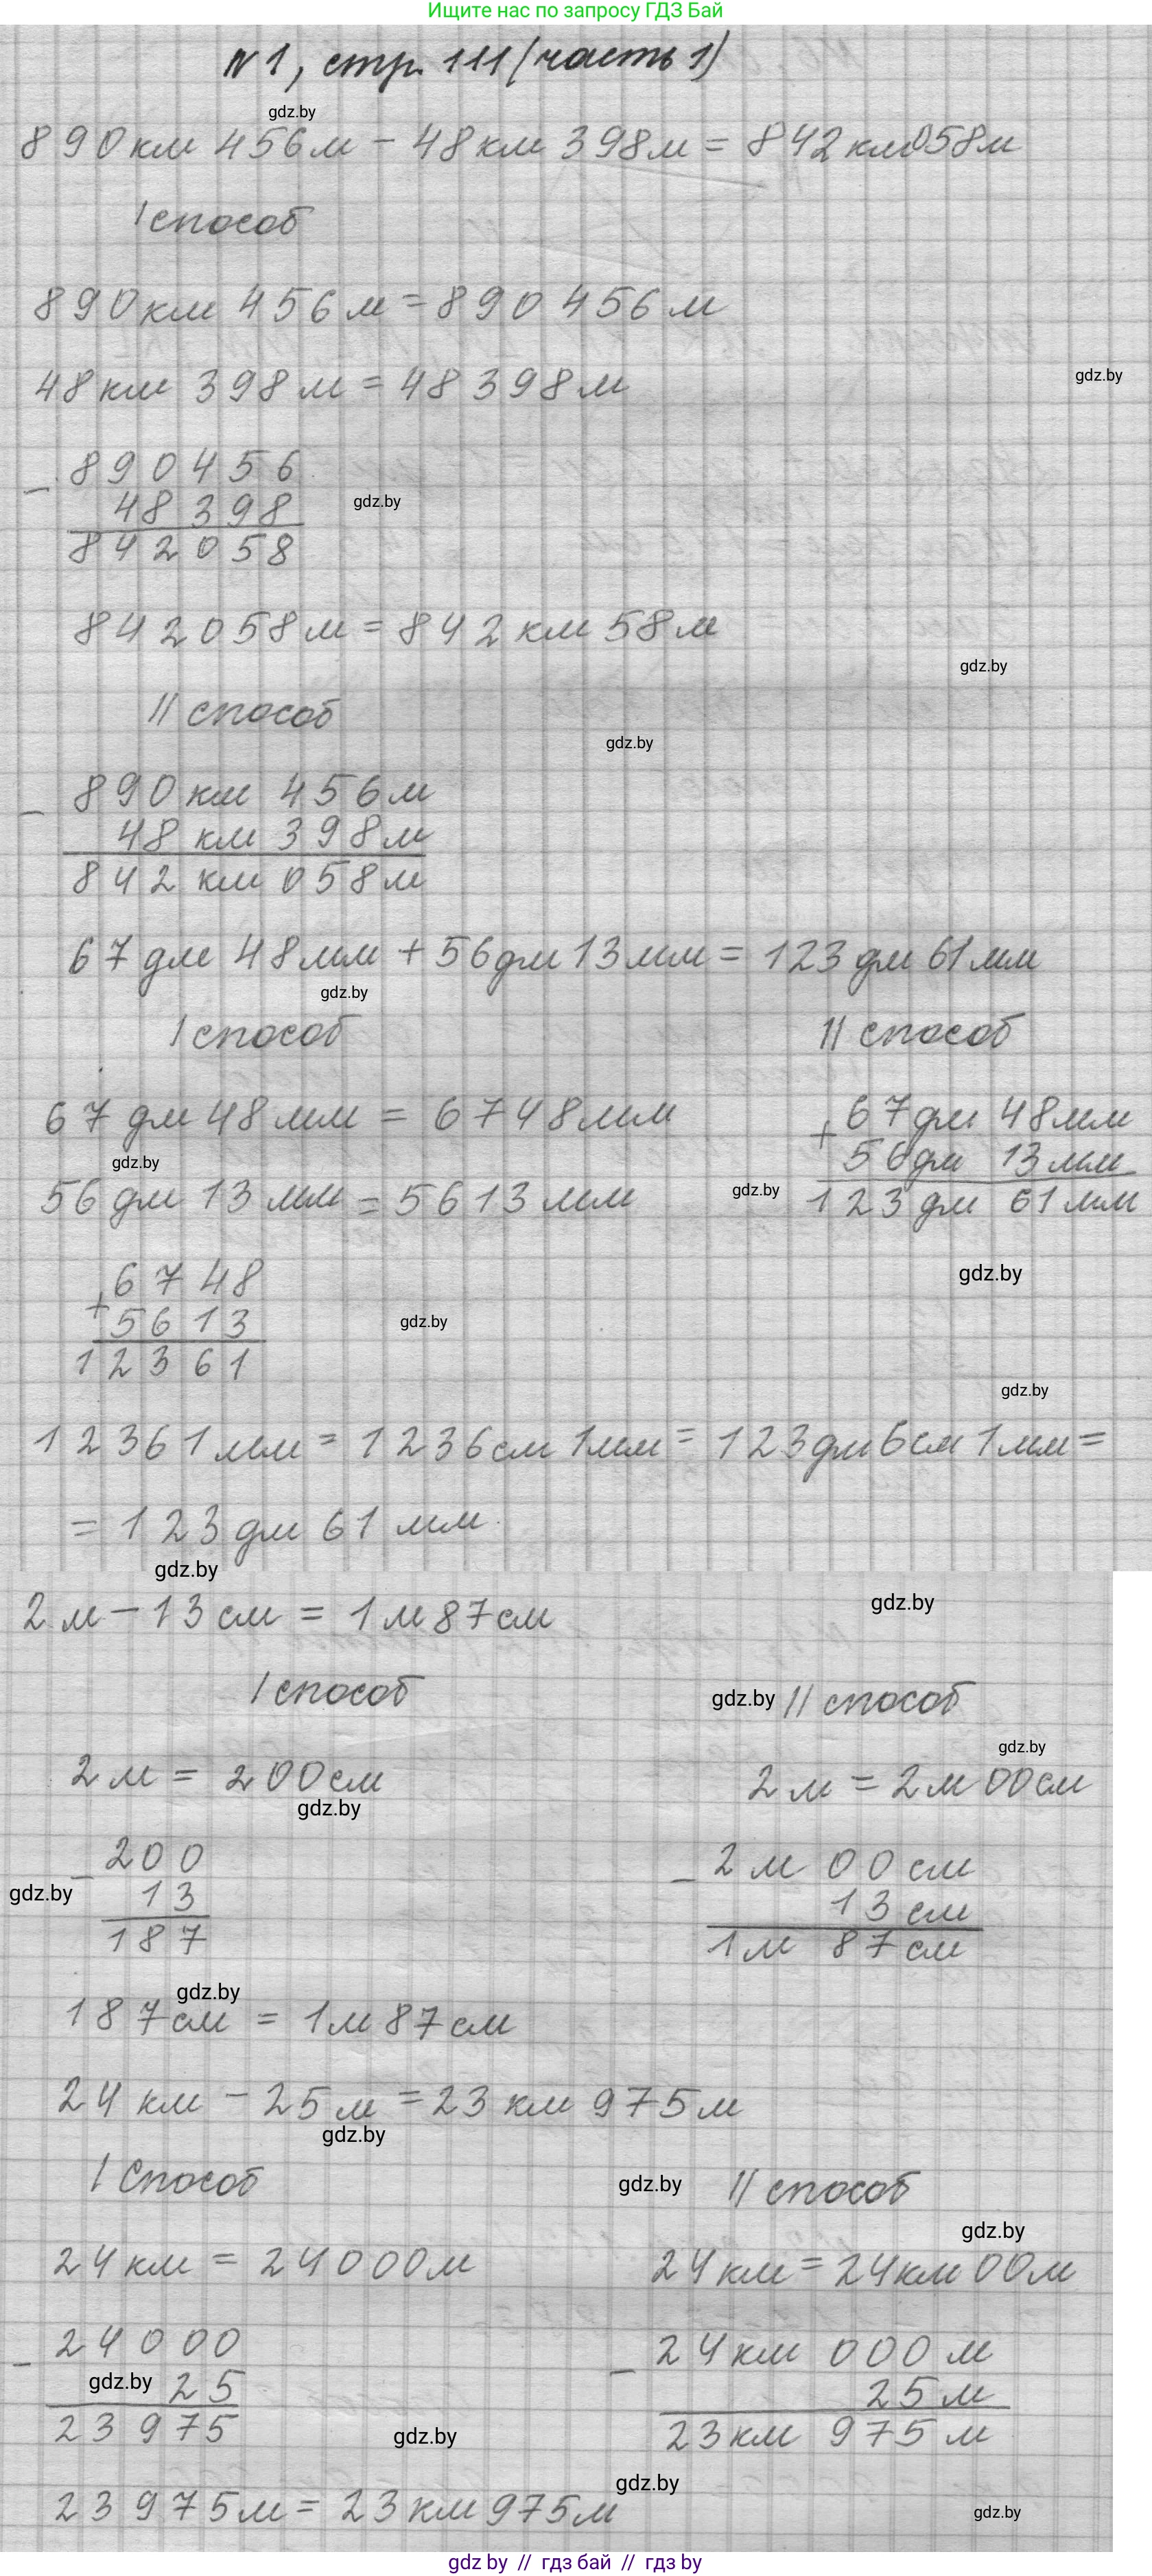 Ищите нас по запросу ГДЗ Бай
N1, стр. 111 (часть 1)
gdz.by
890км 456м - 48км 398м = 842км058м
I способ
890км 456м = 890 456м
48км 398м = 48 398м
gdz.by
- 890456
48398
gdz.by
842058
842058м = 842км 58м
gdz.by
II способ
gdz.by
- 890км 456м
48км 398м
842км 058м
67дм 48мм + 56дм 13мм = 123дм 61мм
gdz.by
I способ
II способ
67дм 48мм = 6748мм
+ 67дм 48мм
56дм 13мм
123дм 61мм
gdz.by
56дм 13мм = 5613мм
gdz.by
gdz.by
+ 6748
5613
12361
gdz.by
gdz.by
12361мм = 1236см 1мм = 123дм 6см 1мм =
= 123дм 61мм
gdz.by
gdz.by
2м - 13см = 1м 87см
I способ
gdz.by
II способ
gdz.by
2м = 200см
2м = 2м 00см
gdz.by
- 200
13
187
gdz.by
- 2м 00см
13см
1м 87см
gdz.by
187см = 1м 87см
24км - 25м = 23км 975м
gdz.by
I Способ
gdz.by
II способ
gdz.by
24км = 24000м
24км = 24км 00м
- 24000
gdz.by
25
23975
- 24км 000м
25м
23км 975м
gdz.by
gdz.by
23975м = 23км 975м
gdz.by
gdz by // гдз бай // гдз by